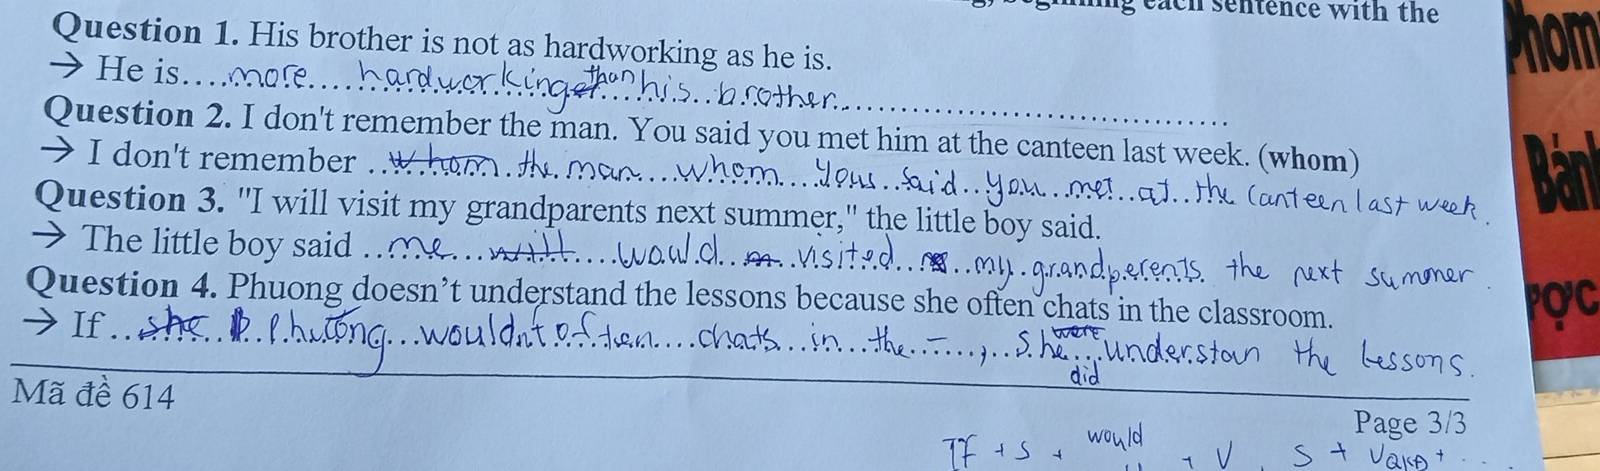 each sentence with the
Question 1. His brother is not as hardworking as he is.
→ He is....more....hardworking than his brother
Question 2. I don't remember the man. You said you met him at the canteen last week. (whom)
→ I don't remember the man whom yous said you met at the canteen last week.
Question 3. "I will visit my grandparents next summer," the little boy said.
→ The little boy said me would visited my grandperents the next summer.
Question 4. Phuong doesn't understand the lessons because she often chats in the classroom.
→ If Phương wouldn't often chats in the –, she were understan the lessons.
did
Mã đề 614
Page 3/3
If + S + would + V, S + V
Phom
Bánh
ợc